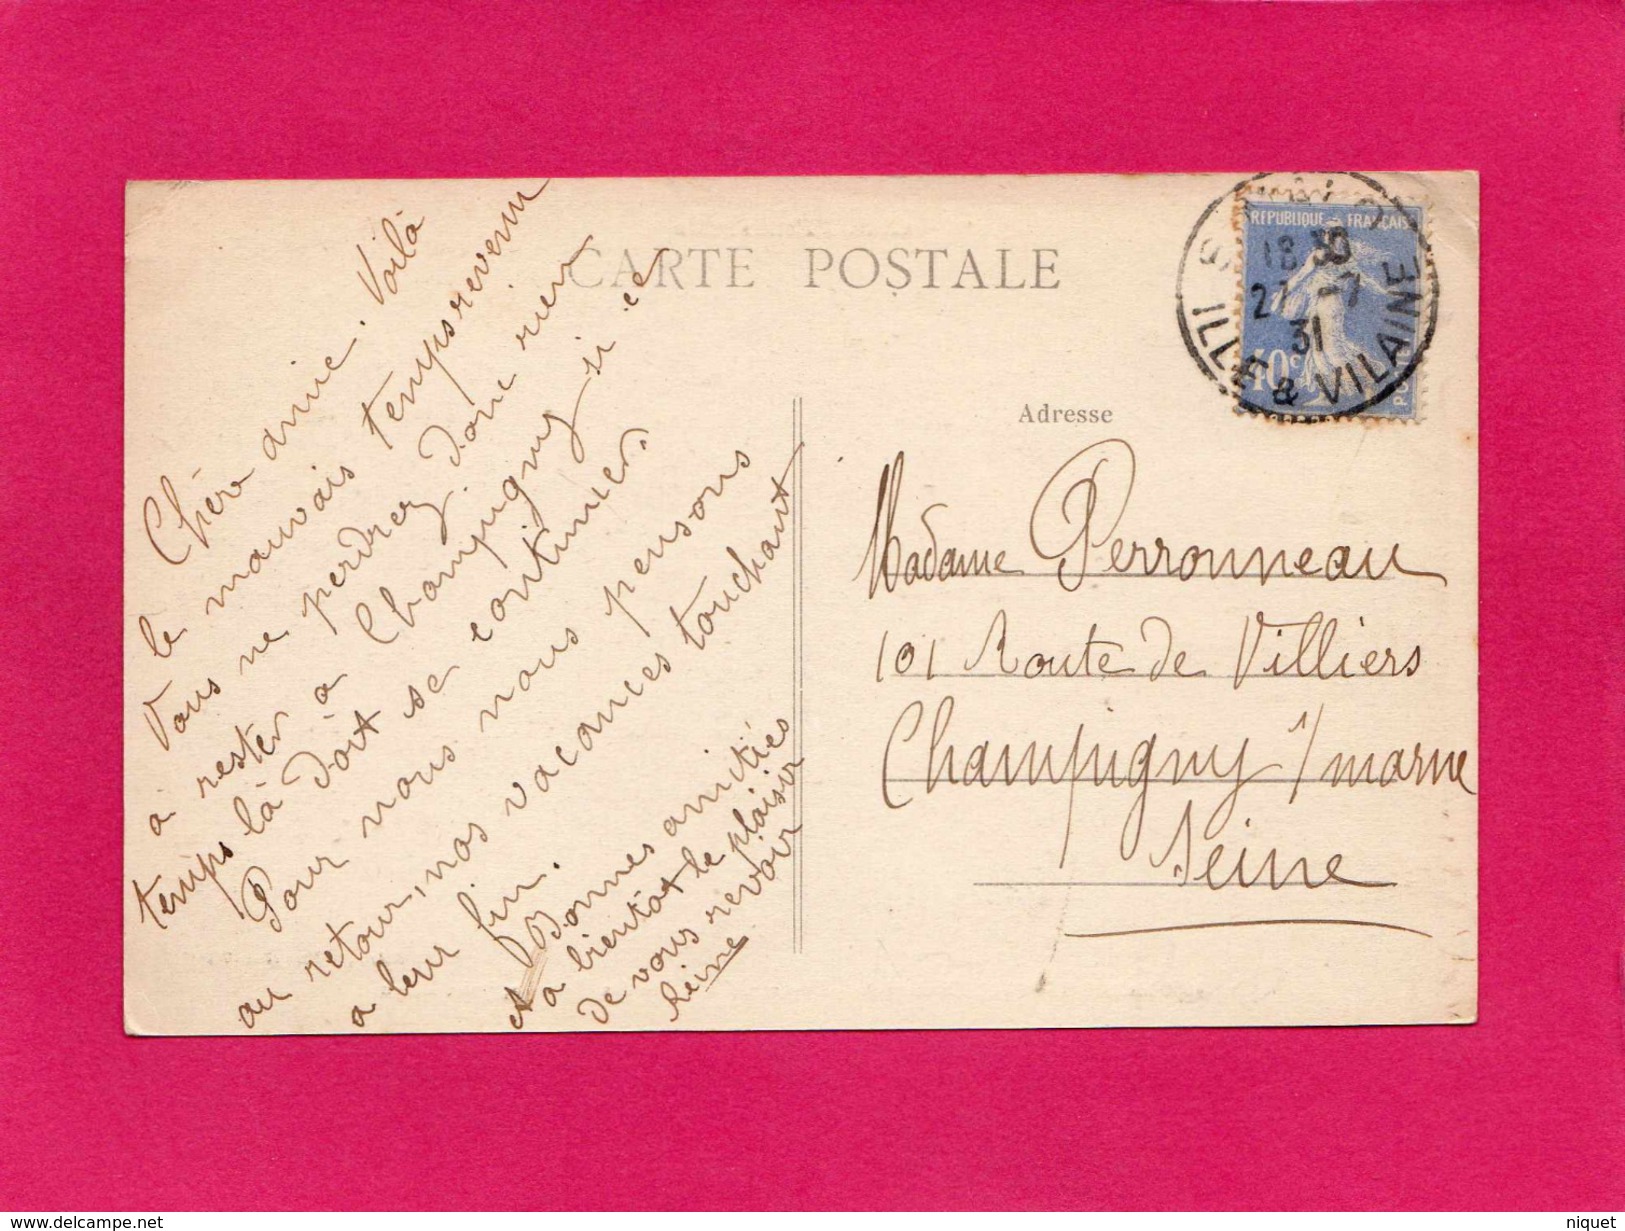 CARTE POSTALE
Chère amie. Voilà
le mauvais temps revenu
Vous ne perdrez donc rien
a rester a Champigny si ce
temps là doit se continuer.
Pour nous nous pensons
au retour, nos vacances touchant
a leur fin.
Bonnes amitiés
et a bientôt le plaisir
de vous revoir
Reine
RÉPUBLIQUE FRANÇAISE
40c
POSTES
18 30
27 -7
31
ILLE & VILAINE
Adresse
Madame Perronneau
101 Route de Villiers
Champigny s/marne
Seine
delcampe.net
niquet